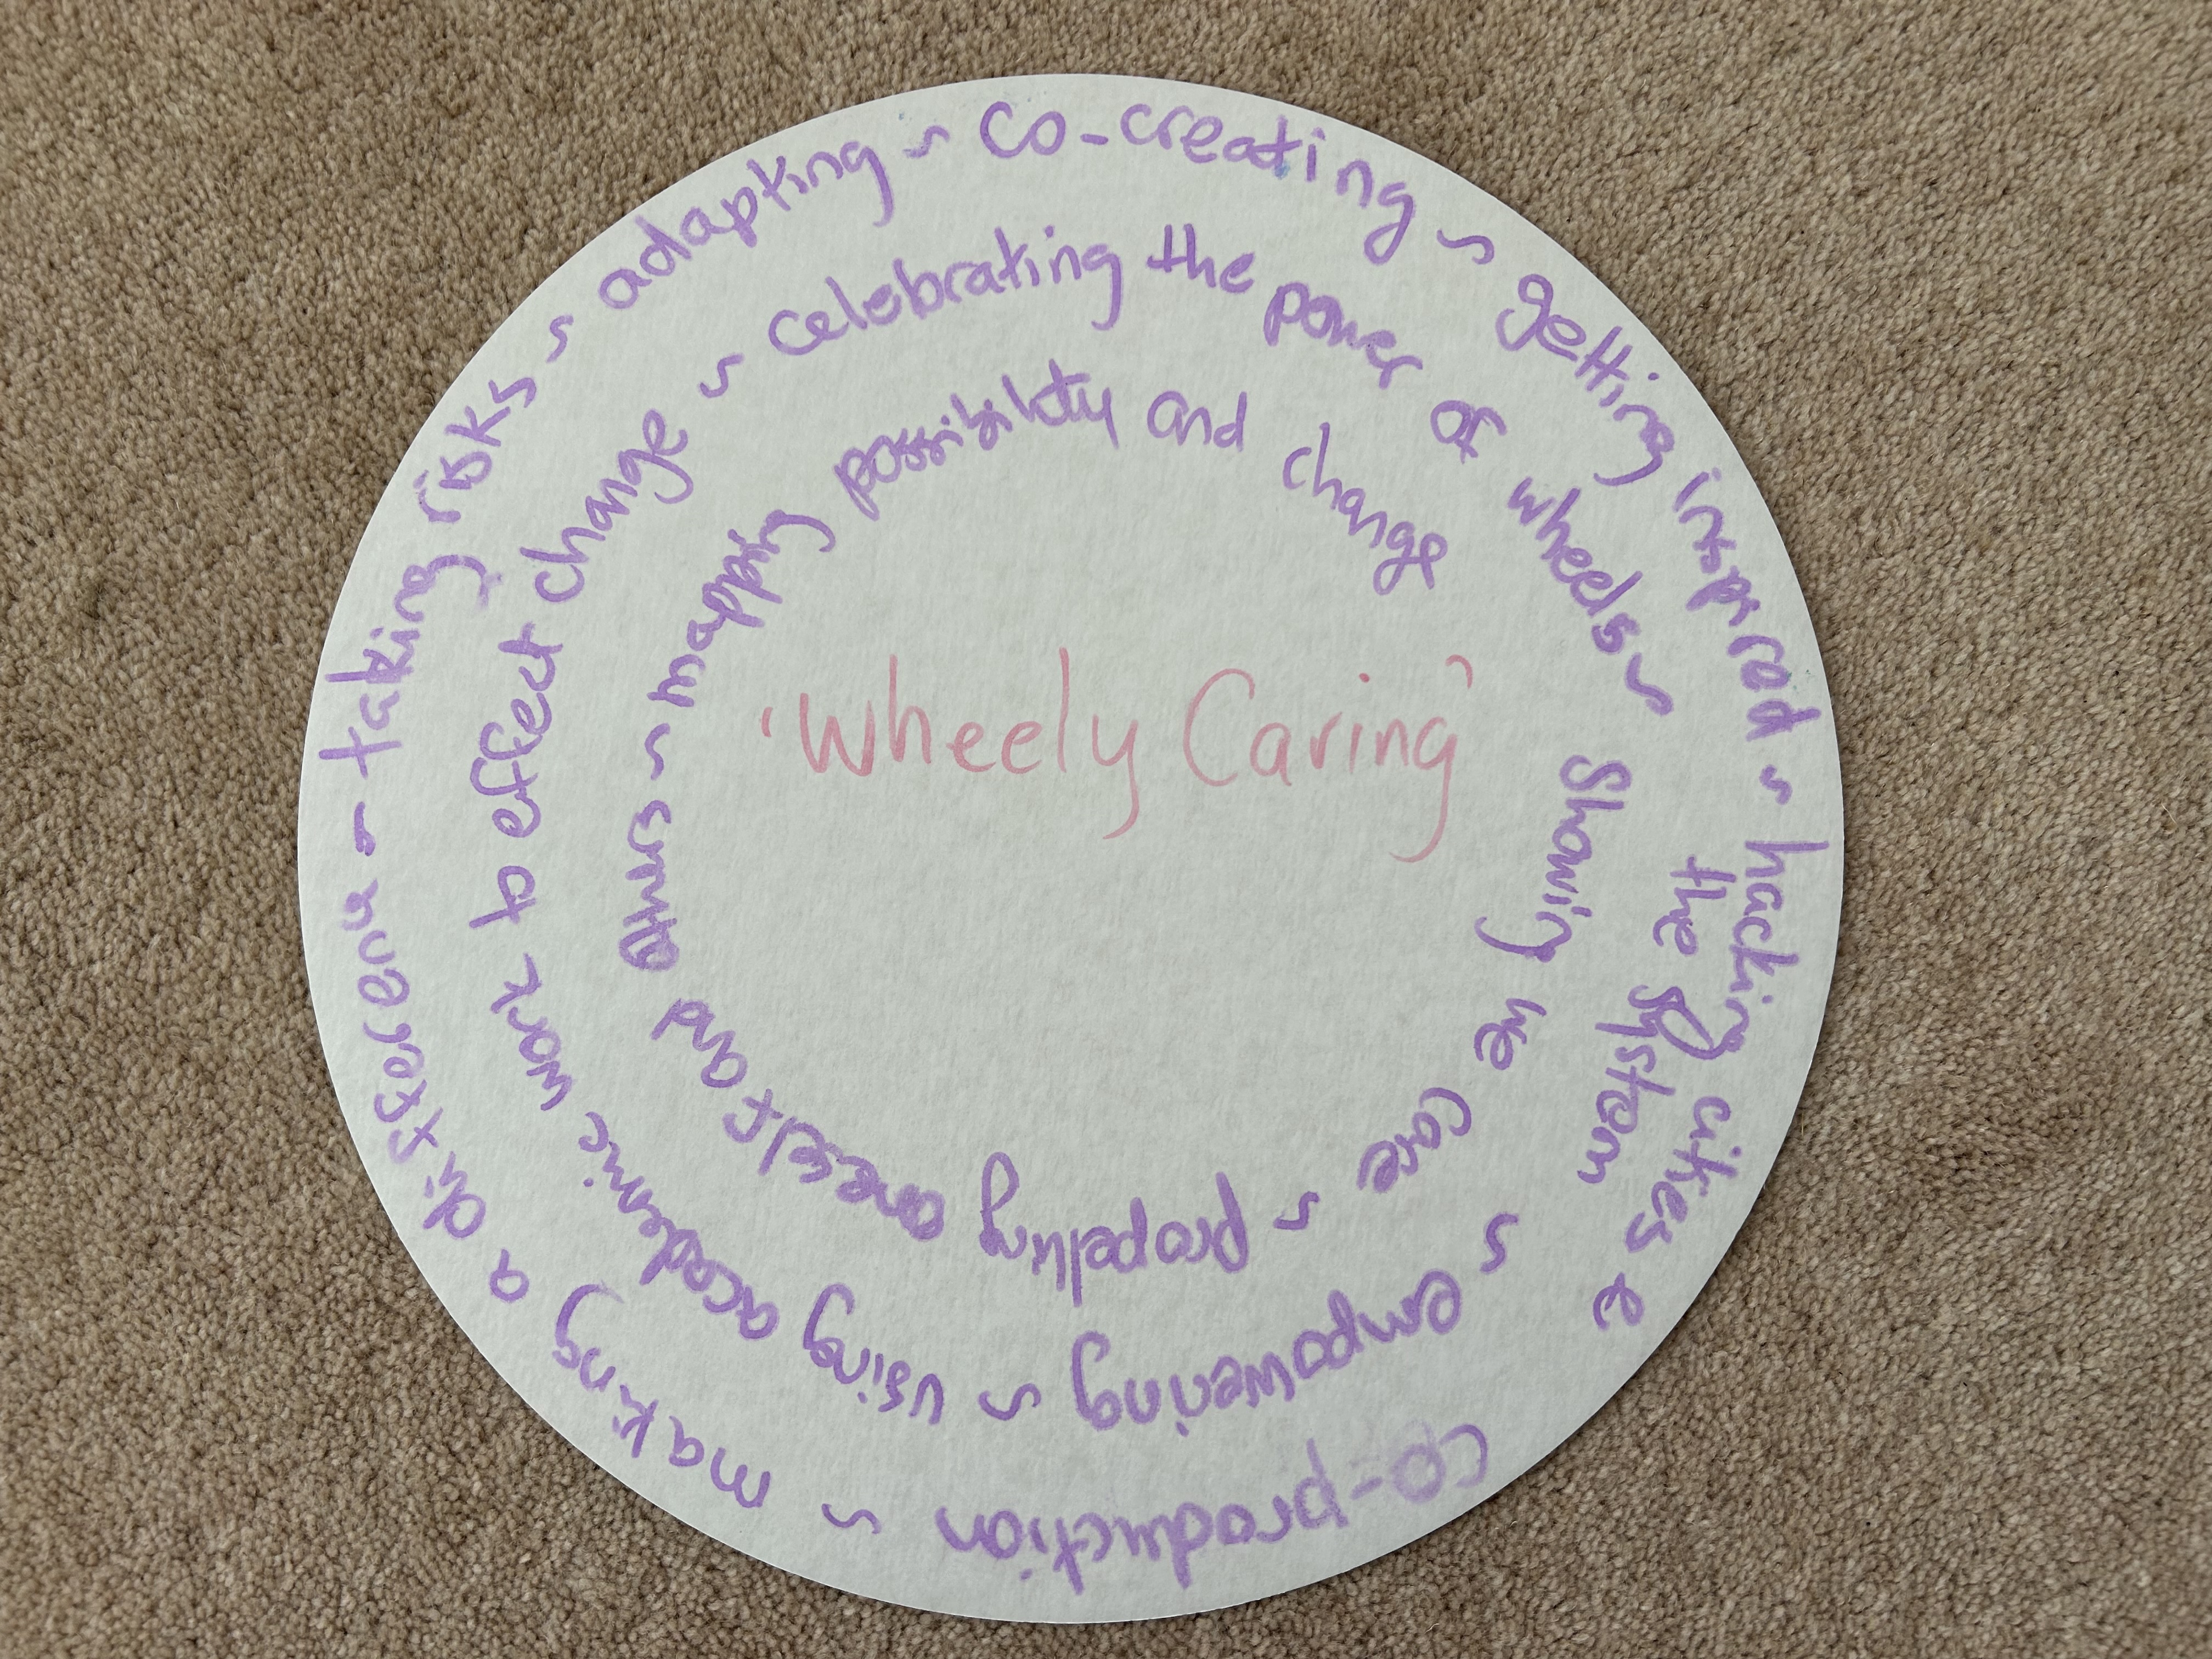 co-production ~ making a difference ~ taking risks ~ adapting ~ co-creating ~ getting ~ hacking
the system ~ empowering ~ using academic work to effect change ~ celebrating the power of wheels ~
showing we care ~ propelling oneself and others ~ mapping possibility and change
'Wheely Caring'